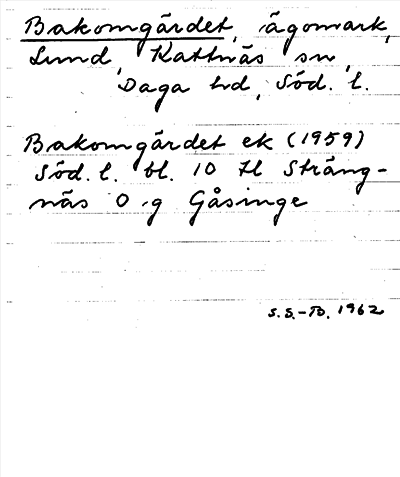 Bakomgärdet, ägomark,
Lund, Kattnäs sn,
Daga hd, Söd. l.
Bakomgärdet ek (1959)
Söd. l. bl. 10 Hl Sträng-
näs O, g Gåsinge
S. S.-B. 1962